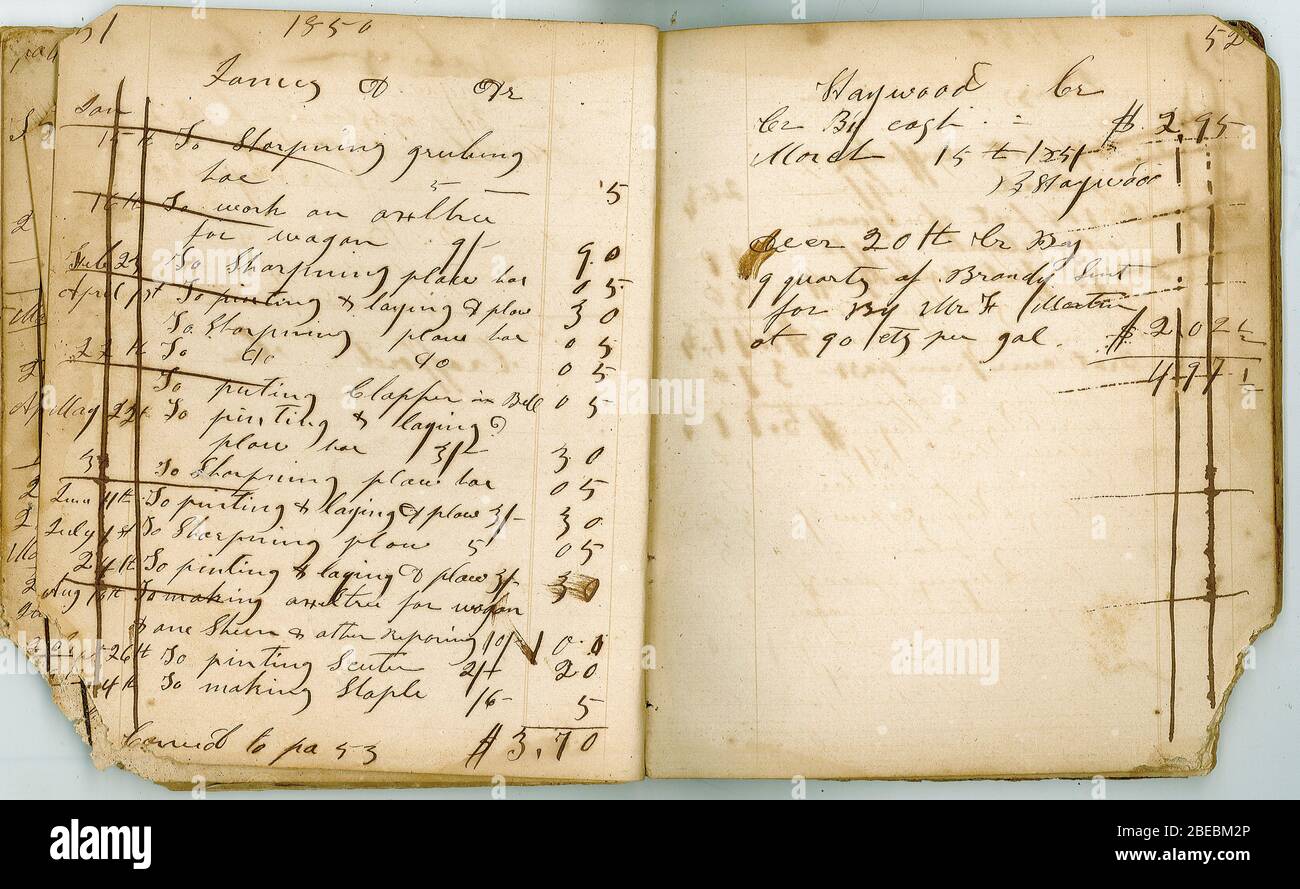 51
1850
James A Dr
Jan
15th To Sharpning grubing
hoe 5 5
16th To work on axxltree
for wagon 9/- 90
Feb 23 To Sharpning plow hoe 05
April 1st To pinting & laying & plow 30
To Sharpning plow hoe 05
22th To do do 05
To puting Clapper in Bell 05
May 22th To pinting & laying &
plow hoe 3/- 30
3 To Sharpning plow hoe 05
June 4th To pinting & laying & plow 3/- 30
July 1st To Sharpning plow 5 05
24th To pinting & laying & plow 3/- 30
Aug 13th To making axxltree for wagon
& one Sheer & other reparing 10/- 100
26th To pinting Scuter 2/- 20
4th To making Staple /6- 5
Carrid to pa 53 $3,70
52
Haywood Cr
Cr By cash $2,95
March 15th 1851
Haywood
20th Cr By
9 quarts of Brandy Sent
for By Mr F Martin
at 90 cts per gal. $2.02½
4.97½
alamy
Image ID: 2BEBM2P
www.alamy.com